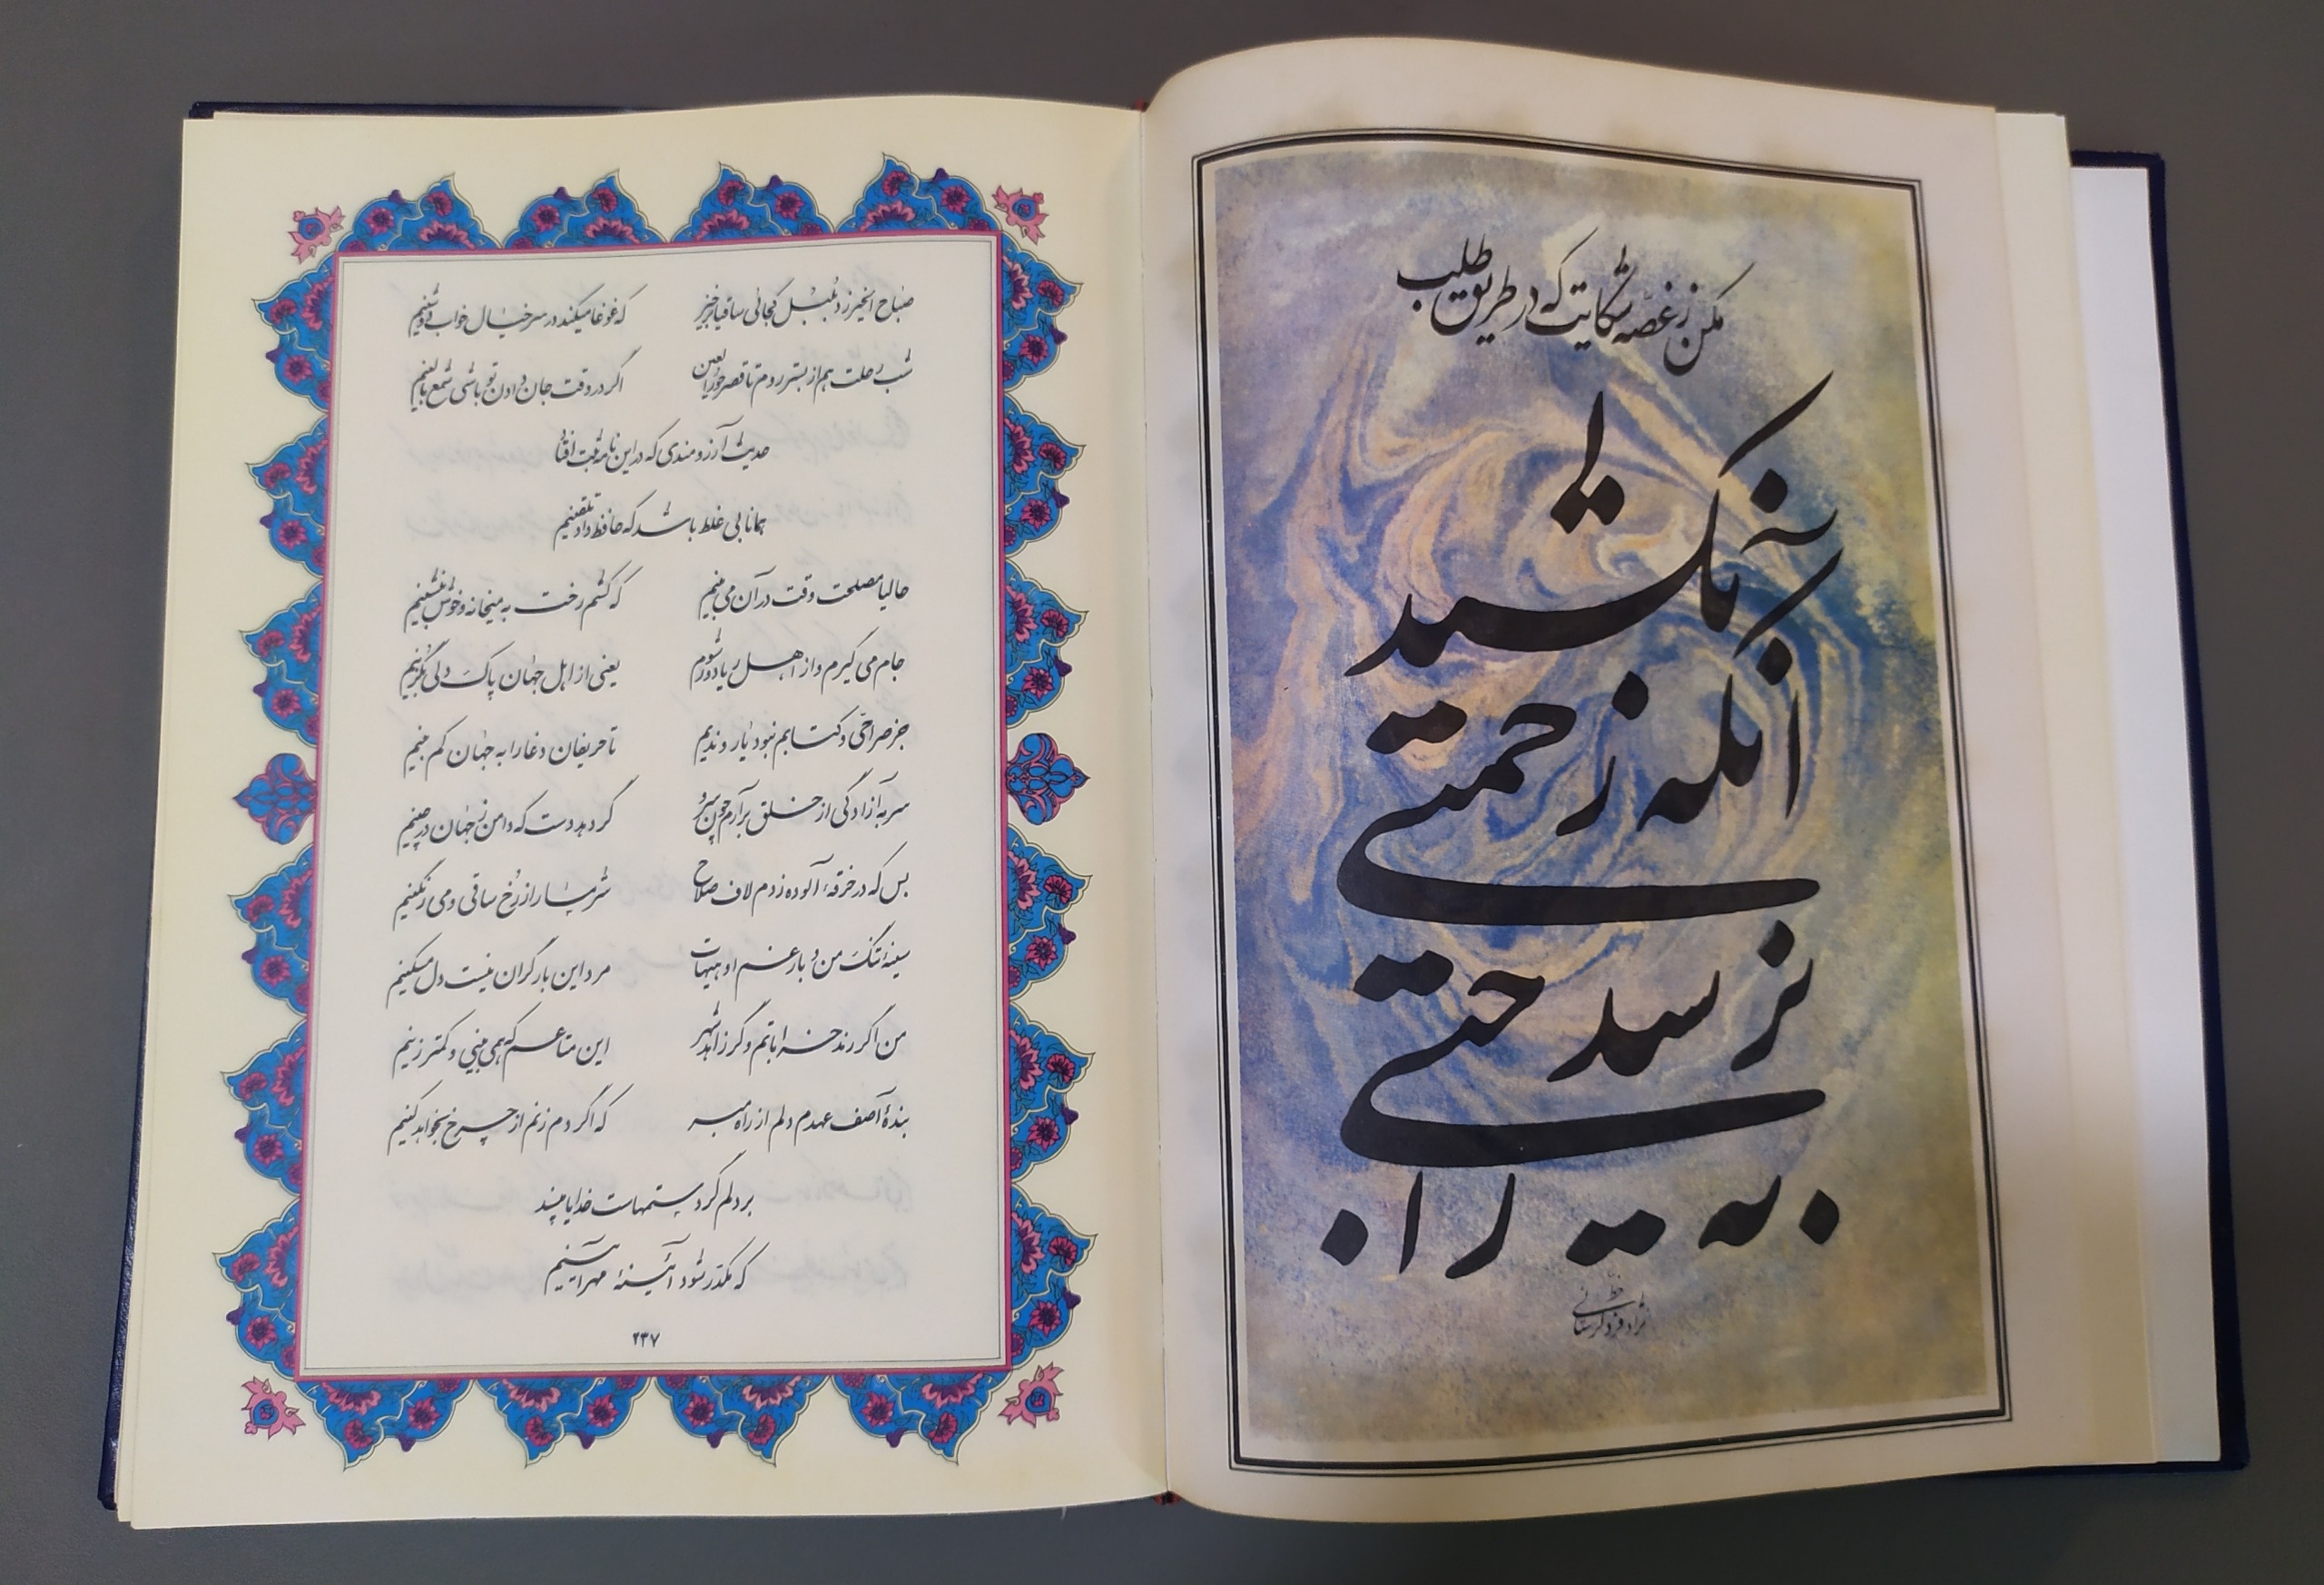 مکن ز غصه شکایت که در طریق طلب
به راحتی نرسید آنکه زحمتی نکشید
خط نژادفرد لرستانی
صباح الخیر زد بلبل کجائی ساقیا برخیز که غوغا میکند در سر خیال خواب دوشینم
شب رحلت هم از بستر روم تا قصر حورالعین اگر در وقت جان دادن تو باشی شمع بالینم
حدیث آرزومندی که در این نامه ثبت افتاد
همانا بی غلط باشد که حافظ داد تلقینم
حالیا مصلحت وقت در آن می بینم که کشم رخت به میخانه و خوش بنشینم
جام می گیرم و از اهل ریا دور شوم یعنی از اهل جهان پاک دلی بگزینم
جز صراحی و کتابم نبود یار و ندیم تا حریفان دغا را به جهان کم بینم
سر به آزادگی از خلق برآرم چون سرو گر دهد دست که دامن ز جهان درچینم
بس که در خرقهٔ آلوده زدم لاف صلاح شرمسار از رخ ساقی و می رنگینم
سینهٔ تنگ من و بار غم او هیهات مرد این بار گران نیست دل مسکینم
من اگر رند خراباتم و گر زاهد شهر این متاعم که همی بینی و کمتر زینم
بندهٔ آصف عهدم دلم از راه مبر که اگر دم زنم از چرخ بخواهد کینم
بر دلم گرد ستمهاست خدایا مپسند
که مکدر شود آئینهٔ مهرآئینم
۲۳۷